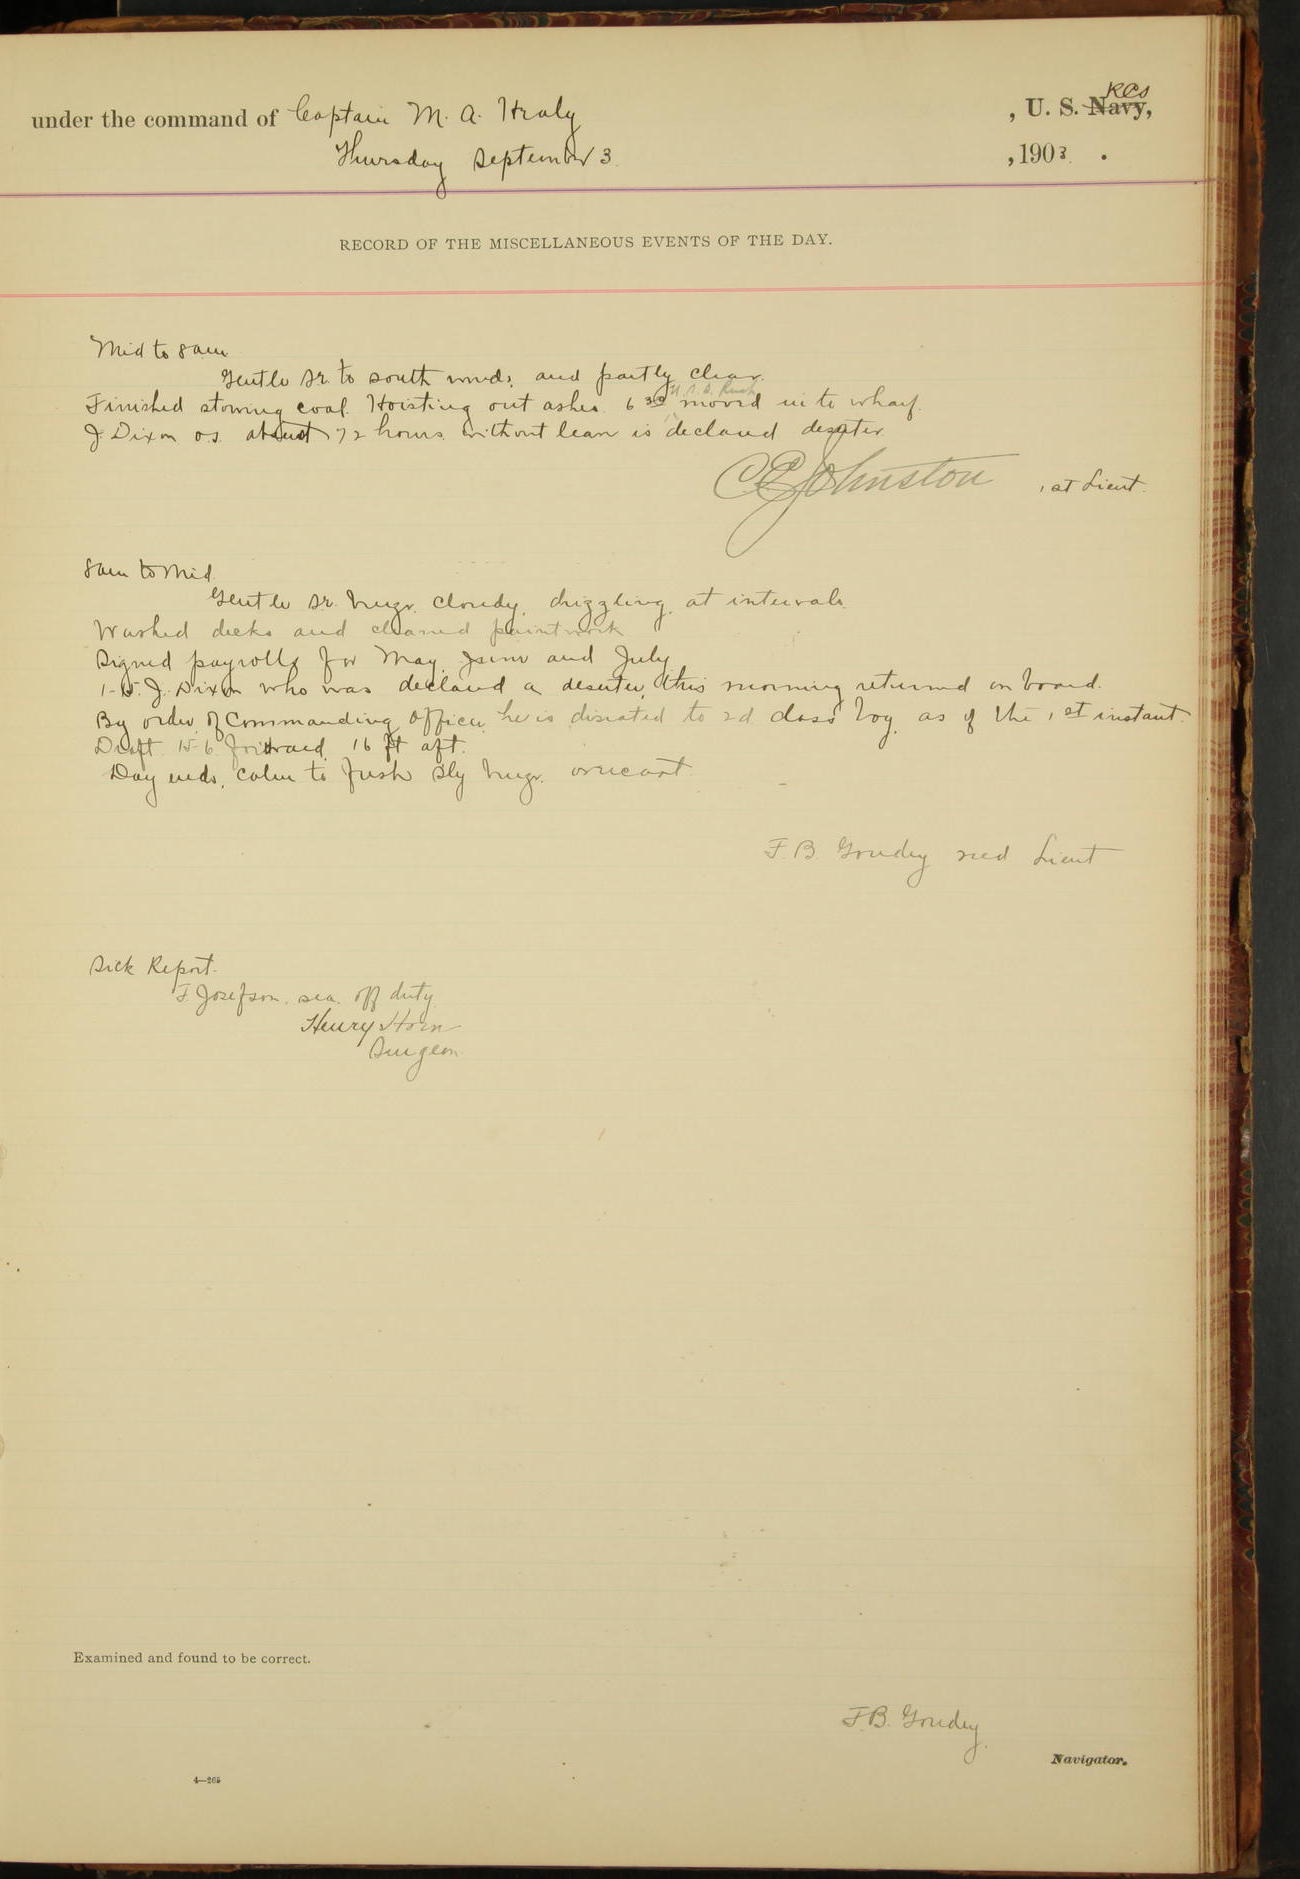 under the command of Captain M. A. Healy , U. S. Navy, RCS
Thursday September 3 , 1903 .
RECORD OF THE MISCELLANEOUS EVENTS OF THE DAY.
Mid to 8 am
Gentle Sr. to south winds, and partly clear.
U.S.S. Rush
Finished stowing coal. Hoisting out ashes. 6 30 moved in to wharf.
J Dixon o.s. absent 72 hours without leave is declared deserter.
C E Johnston , 1st Lieut.
8 am to Mid
Gentle Sr. brzs. cloudy, drizzling at intervals.
Washed decks and cleaned paintwork
Signed payrolls for May, June and July
1-15. J. Dixon who was declared a deserter this morning returned on board.
By order of Commanding Officer he is disrated to 2d class boy as of the 1st instant.
Draft 15-6 forward 16 ft aft.
Day ends, calm to fresh Sly brzs. overcast
F. B. Goudey Lieut
Sick Report.
F Josefson. sea. off duty
Henry Horn
Surgeon
Examined and found to be correct.
F.B. Goudey
Navigator.
4—265